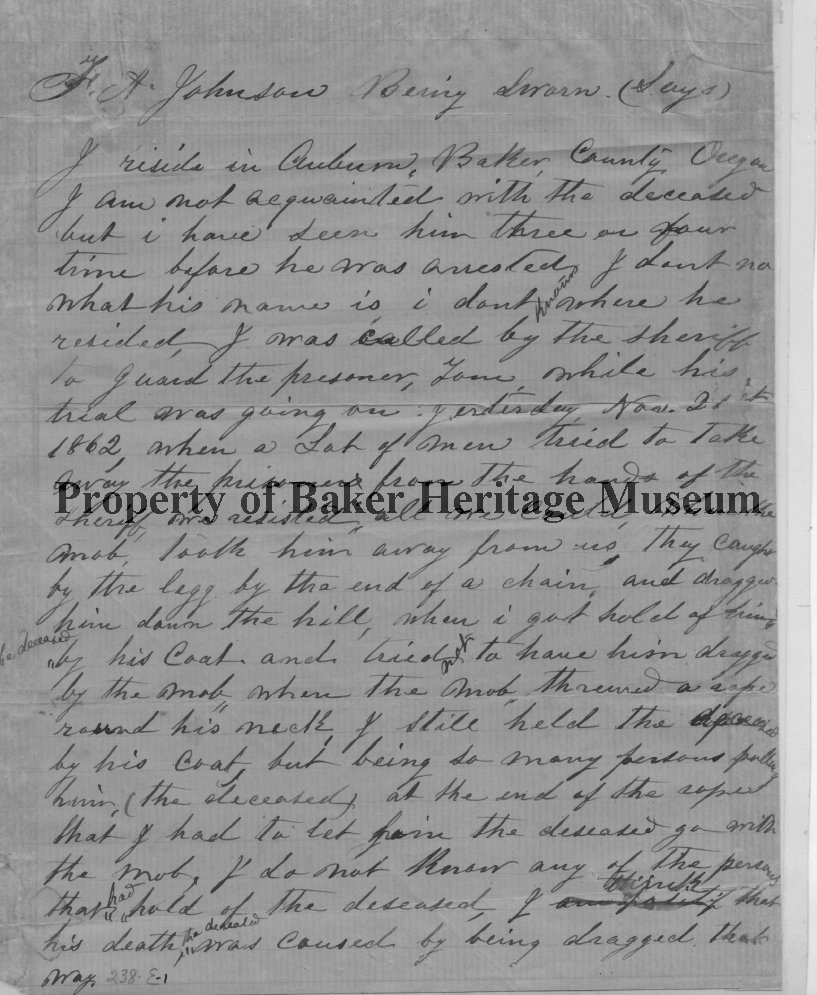 F. A. Johnson Being Sworn. (Says)
I reside in Auburn, Baker, County, Oregon
I am not acquainted with the deceased
but i have seen him three or four
time before he was arrested, I dont no
what his name is, i dont know where he
resided I was called by the sheriff
to guard the presoner, Tom, while his
trial was going on yesterday Nov. 21st
1862, when a Lot of men tried to take
away the prisoners from the hands of the
Property of Baker Heritage Museum
sheriff, we resisted, all we could, the
mob, toolk him away from us, they caught
by the legg by the end of a chain, and dragged
him down the hill, when i got hold of him
the deceased
by his Coat. and tried not to have him dragged
by the mob, when the mob threwed a rope
round his neck, I still held the deceased
by his Coat, but being so many persons pulling
him, (the deceased) at the end of the rope
that I had to let the deseased go with
the mob, I do not Know any of the persons
that had hold of the deseased, I think that
his death the deseased was caused by being dragged that
way. 238-E-1